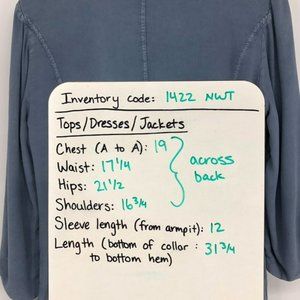 Inventory code: 1422 NWT
Tops/Dresses/Jackets
Chest (A to A): 19
Waist: 17 1/4
Hips: 21 1/2
Shoulders: 16 3/4
across
back
Sleeve length (from armpit): 12
Length (bottom of collar : 31 3/4
to bottom hem)